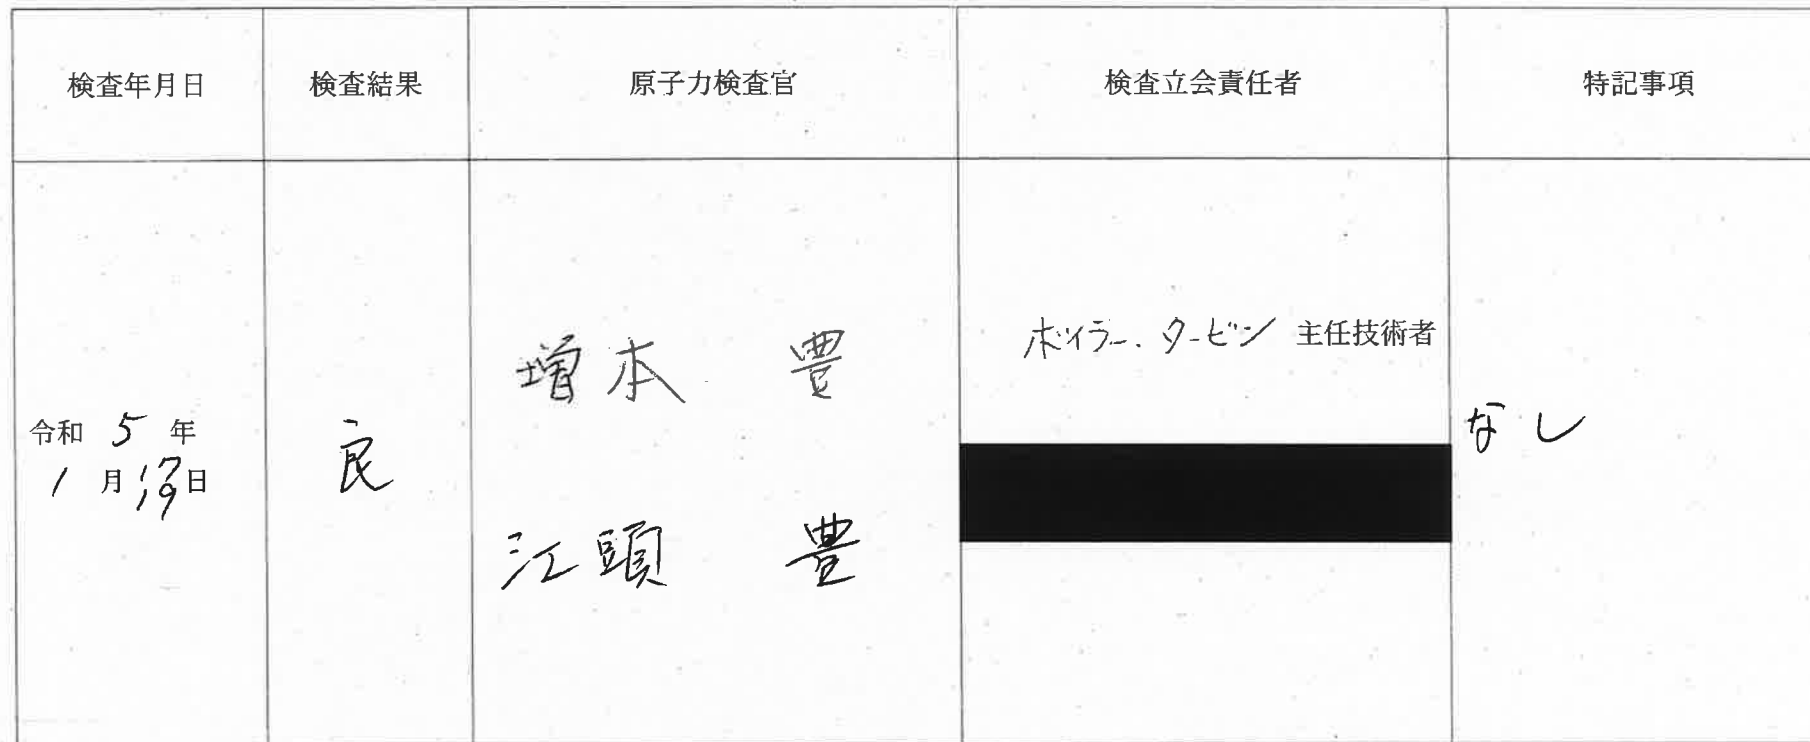 検査年月日
検査結果
原子力検査官
検査立会責任者
特記事項
令和 5 年
1 月 17 日
19
良
増本 豊
江頭 豊
ボイラー・タービン 主任技術者
なし